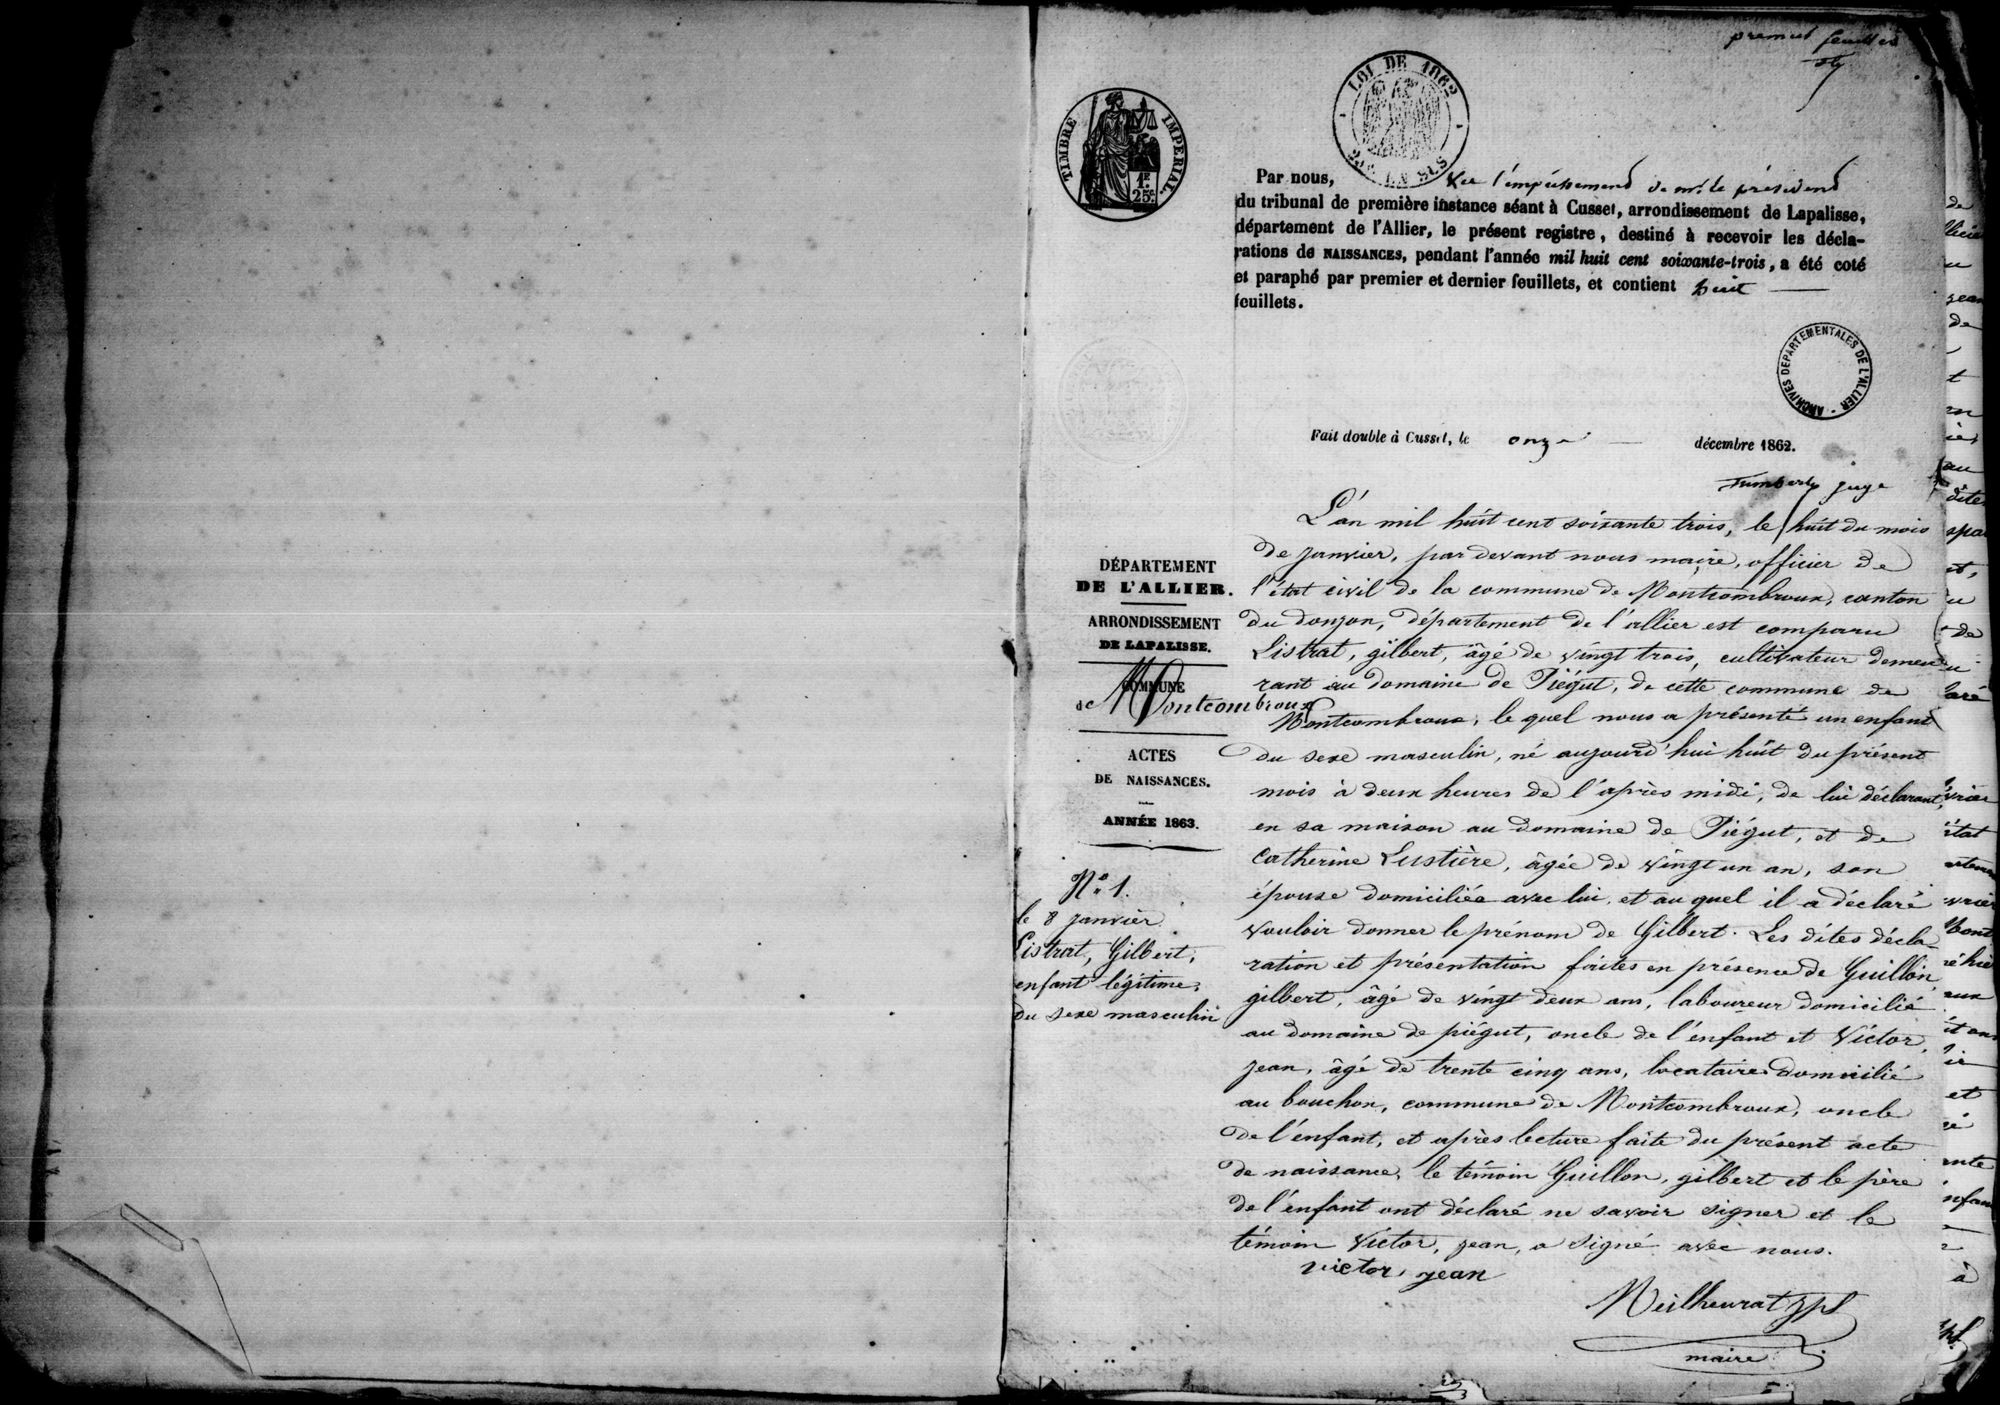 premier feuillet
TIMBRE IMPERIAL
1F 25c
LOI DE 1862
2/10 EN SUS
Par nous, vu l'empêchement de mr le président
du tribunal de première instance séant à Cusset, arrondissement de Lapalisse,
département de l'Allier, le présent registre, destiné à recevoir les décla-
rations de NAISSANCES, pendant l'année mil huit cent soixante-trois, a été coté
et paraphé par premier et dernier feuillets, et contient huit
feuillets.
ARCHIVES DEPARTEMENTALES DE L'ALLIER
Fait double à Cusset, le onze décembre 1862.
juge
DÉPARTEMENT
DE L'ALLIER.
ARRONDISSEMENT
DE LAPALISSE.
COMMUNE
de Montcombroux
ACTES
DE NAISSANCES.
ANNÉE 1863.
No 1.
le 8 janvier
Listrat, Gilbert,
enfant légitime,
du sexe masculin
L'an mil huit cent soixante trois, le huit du mois
de janvier, par devant nous maire, officier de
l'état civil de la commune de Montcombroux, canton
du donjon, département de l'allier est comparu
Listrat, gilbert, âgé de vingt trois, cultivateur demeu
rant au domaine de Piégut, de cette commune de
Montcombroux, le quel nous a présenté un enfant
du sexe masculin, né aujourd'hui huit du présent
mois à deux heures de l'après midi, de lui déclarant,
en sa maison au domaine de Piégut, et de
Catherine Lustière, âgée de vingt un an, son
épouse domiciliée avec lui, et au quel il a déclaré
vouloir donner le prénom de Gilbert. Les dites décla-
ration et présentation faites en présence de Guillon,
gilbert, âgé de vingt deux ans, laboureur domicilié
au domaine de piégut, oncle de l'enfant et Victor,
jean, âgé de trente cinq ans, locataire domicilié
au bouchon, commune de Montcombroux, oncle
de l'enfant, et après lecture faite du présent acte
de naissance, le témoin Guillon, gilbert et le père
de l'enfant ont déclaré ne savoir signer et le
témoin Victor, jean, a signé avec nous.
victor, jean
Meilheurat
maire